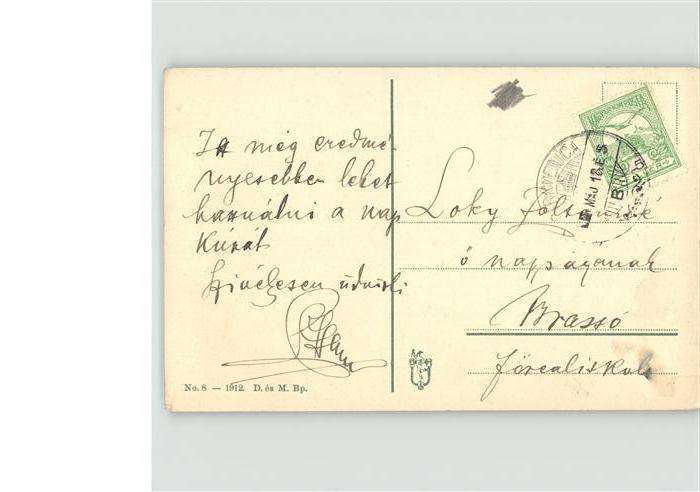 Itt még eredmé-
nyesebben lehet
használni a nap
kúrát
Szívélyesen üdvözli
Loky Zoltánné
ő nagyságának
Brassó
főrealiskola
No. 8 — 1912. D. és M. Bp.